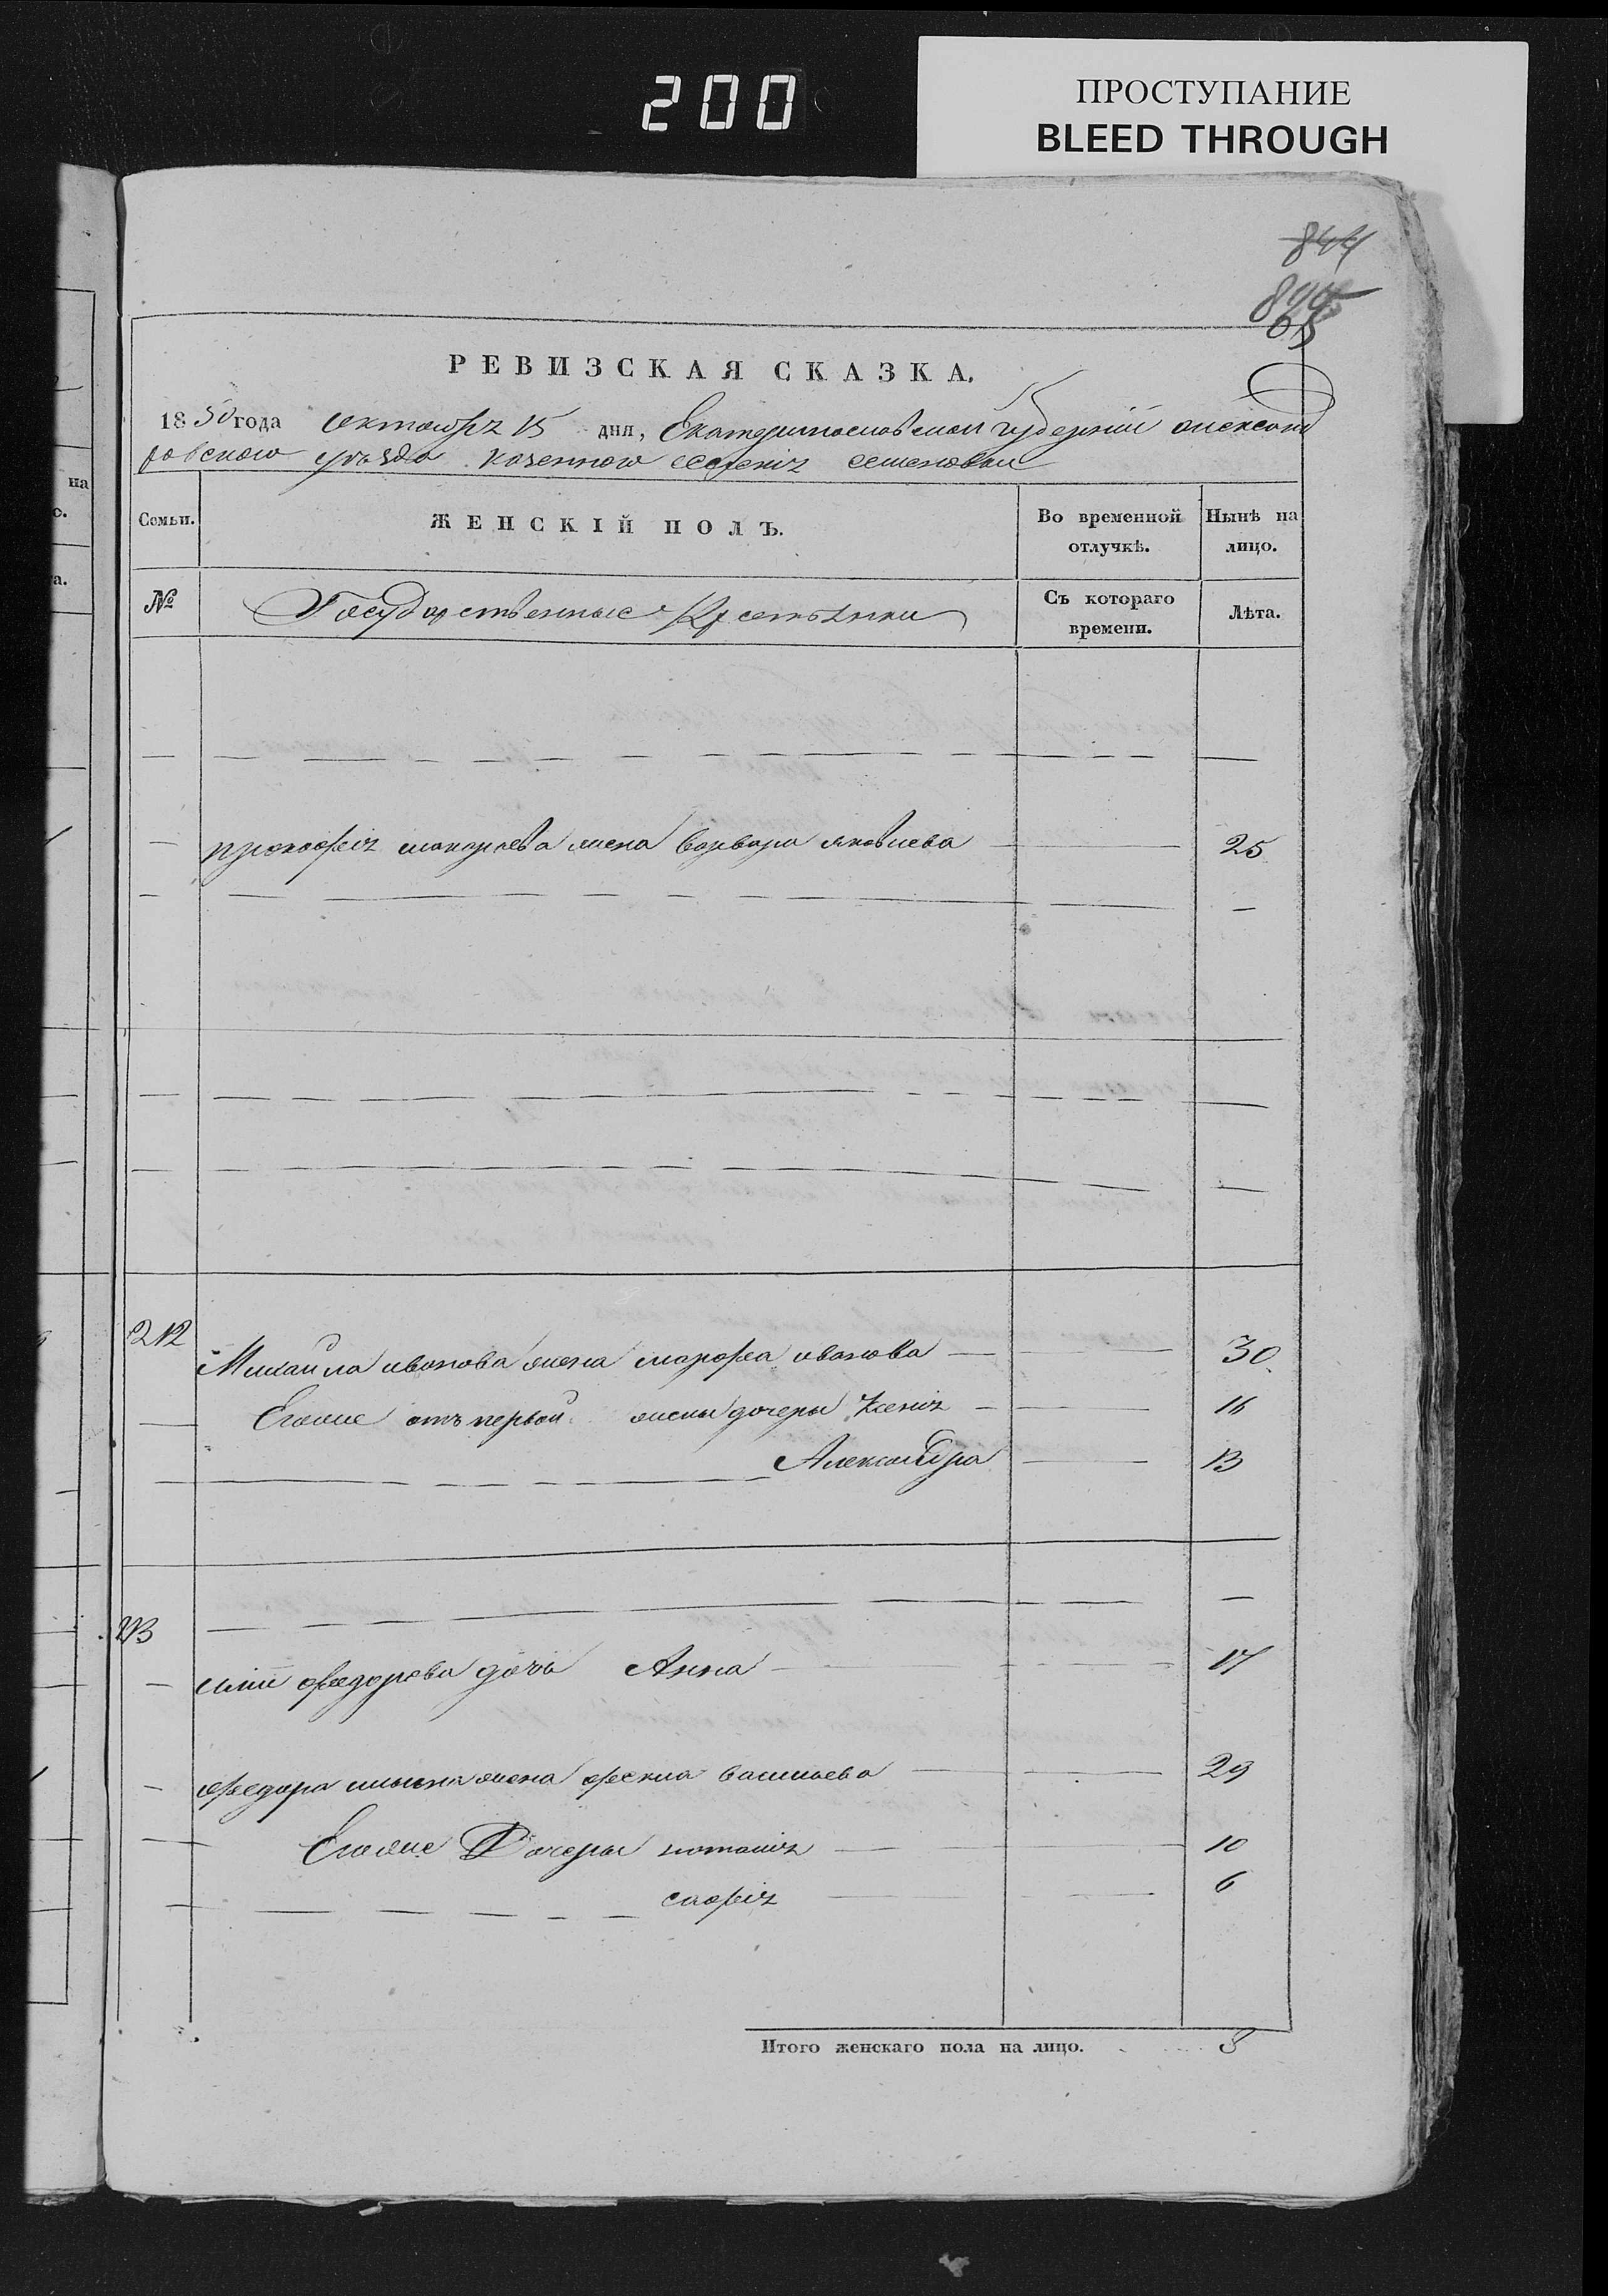 200
ПРОСТУПАНИЕ
BLEED THROUGH
844
845
65
РЕВИЗСКАЯ СКАЗКА.
1850 года октября 15 дня, Екатеринославской губернии александ
ровского уезда казенного селения семеновки
на
Семьи.
ЖЕНСКІЙ ПОЛЪ.
Во временной отлучкѣ.
Нынѣ на лицо.
№
Государственные Крестьянки
Съ котораго времени.
Лѣта.
прокофія макарова жена варвара яковлева 25
212
Михайла иванова жена марфа иванова 30
Егоже отъ первой жены дочеры Ксенія 16
Александра 13
213
федорова дочь Анна 17
федора ильина жена фекла васильева 29
Егоже Дочеры наталія 10
софія 6
Итого женскаго пола на лицо. 8